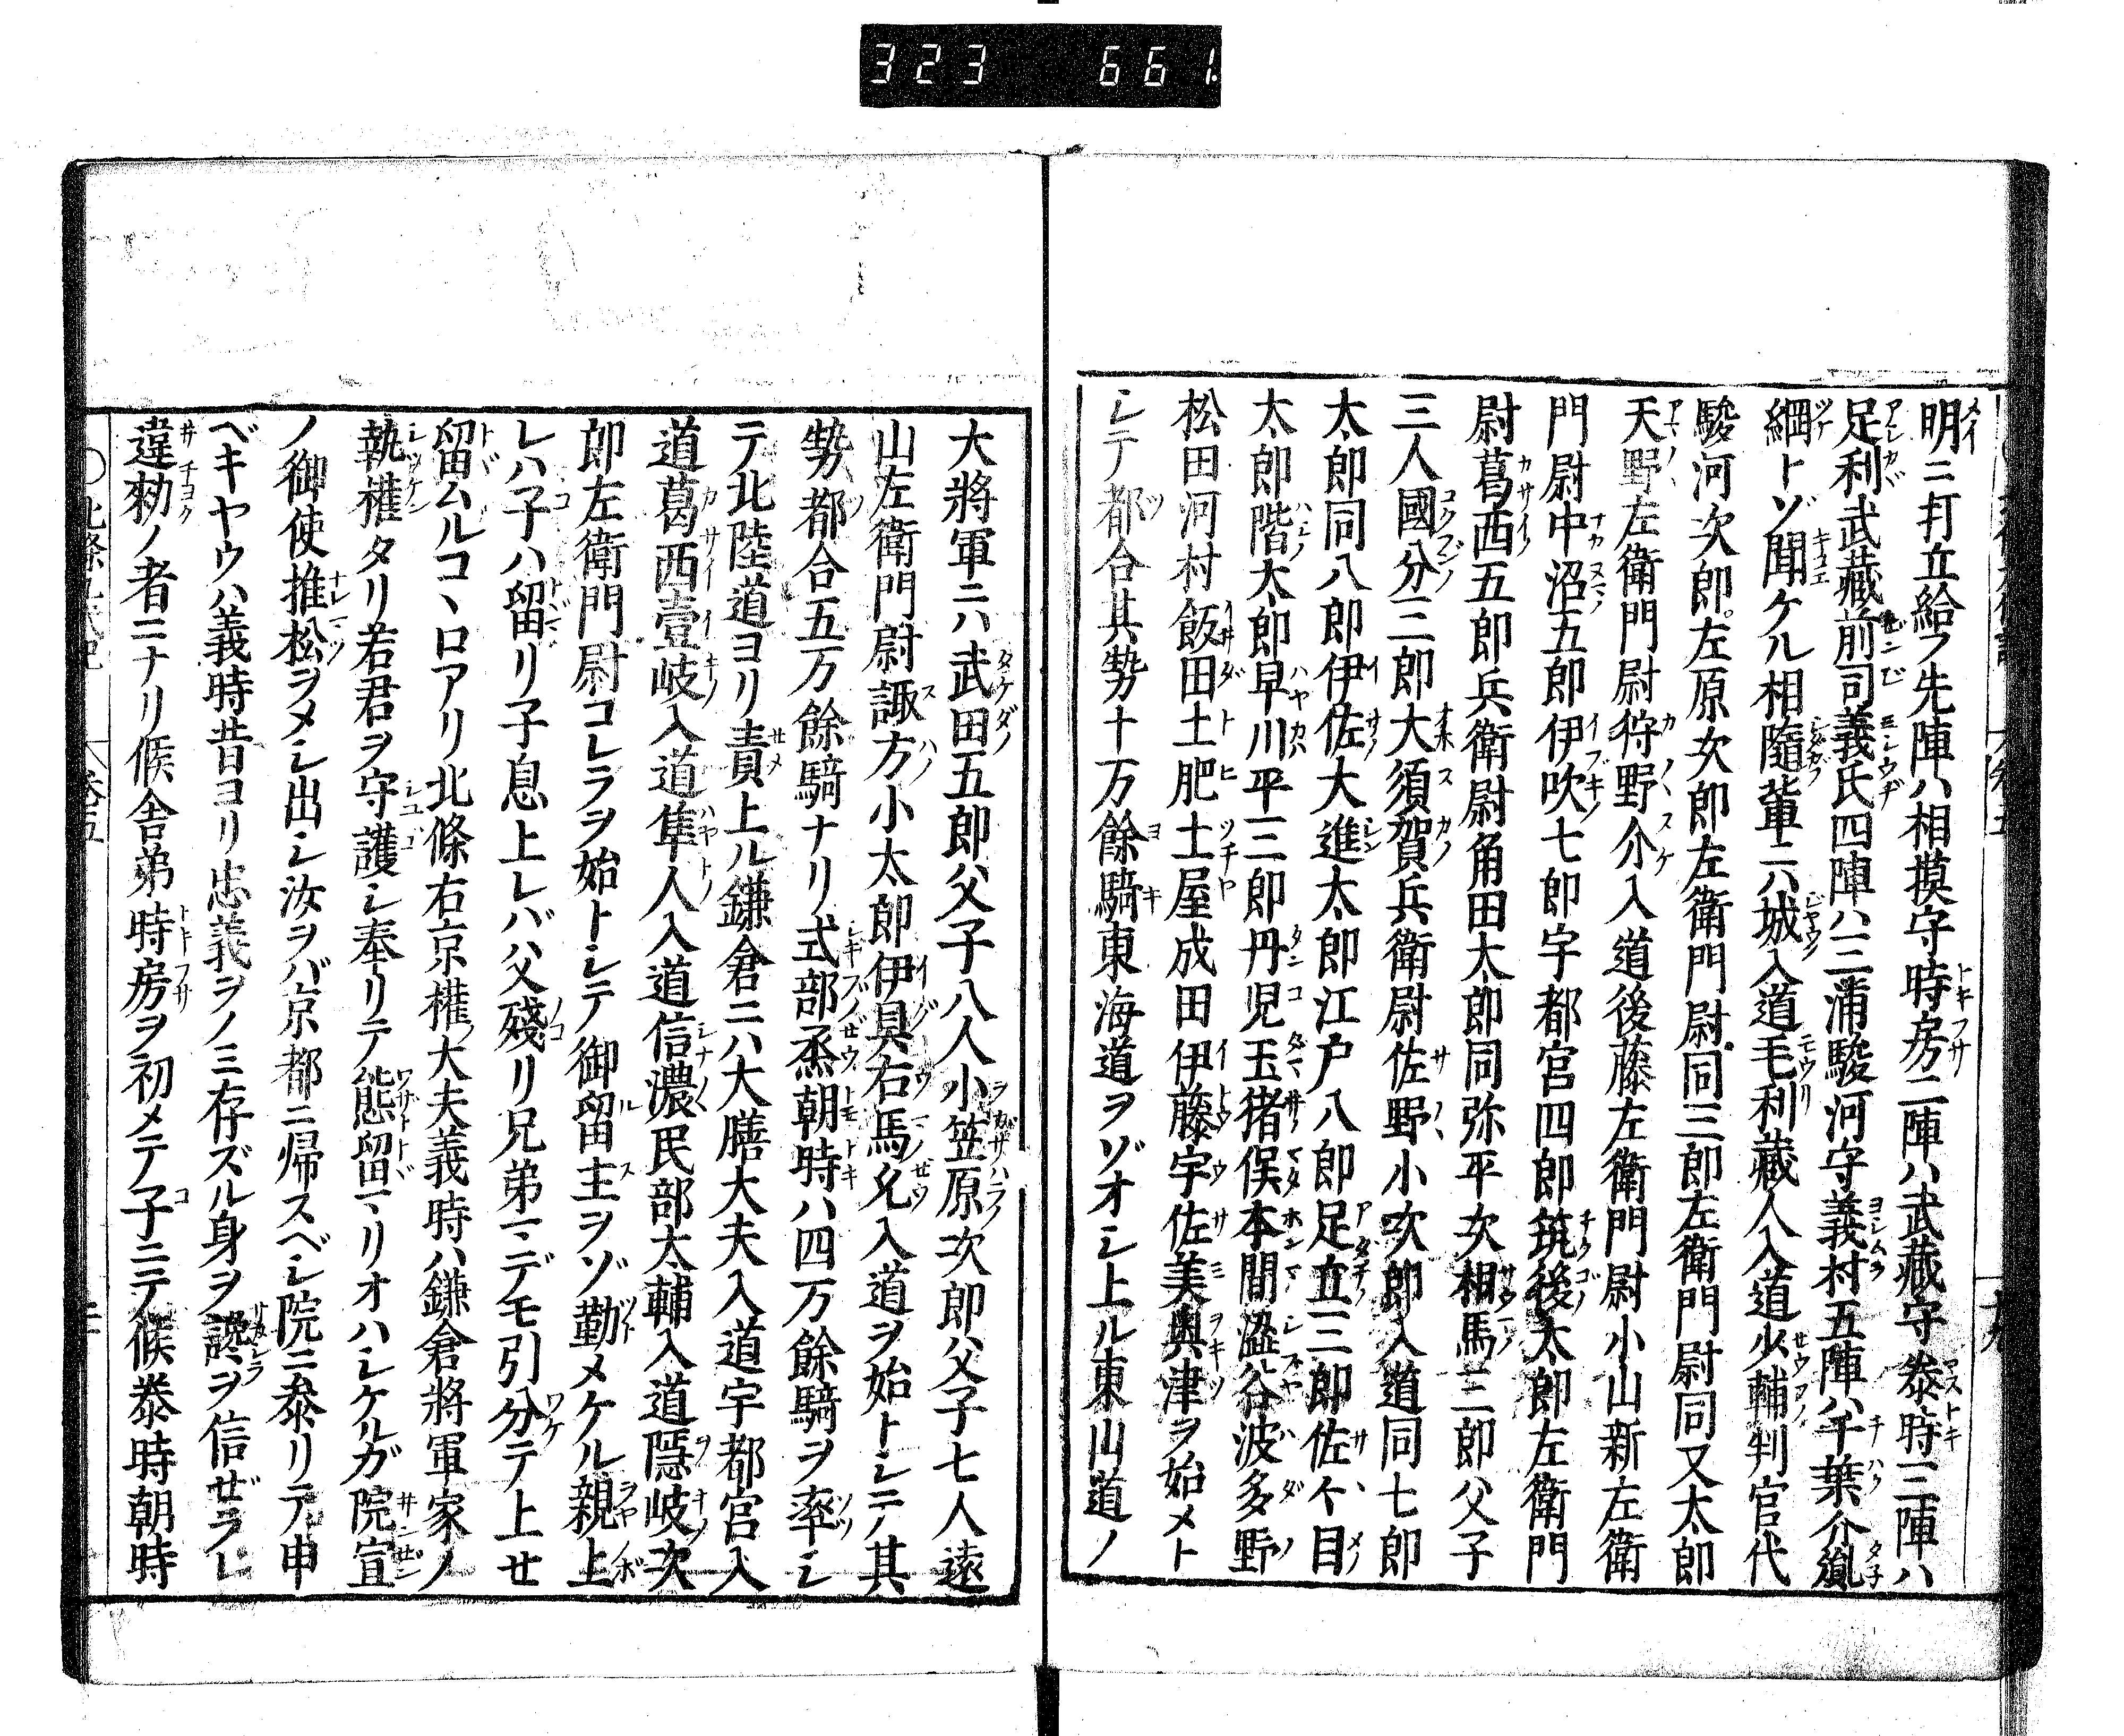 323 661
明ニ打立給フ先陣ハ相摸守時房二陣ハ武藏守泰時三陣ハ
足利武藏前司義氏四陣ハ三浦駿河守義村五陣ハ千葉介胤
綱トゾ聞ケル相隨輩ニハ城入道毛利藏人入道少輔判官代
駿河次郎左原次郎左衛門尉同三郎左衛門尉同又太郎
天野左衛門尉狩野介入道後藤左衛門尉小山新左衛
門尉中沼五郎伊吹七郎宇都宮四郎筑後太郎左衛門
尉葛西五郎兵衛尉角田太郎同弥平次相馬三郎父子
三人國分三郎大須賀兵衛尉佐野小次郎入道同七郎
太郎同八郎伊佐大進太郎江戸八郎足立三郎佐々目
太郎階太郎早川平三郎丹児玉猪俣本間澁谷波多野
松田河村飯田土肥土屋成田伊藤宇佐美奥津ヲ始メト
シテ都合其勢十万餘騎東海道ヲゾオシ上ル東山道ノ
大將軍ニハ武田五郎父子八人小笠原次郎父子七人遠
山左衛門尉諏方小太郎伊具右馬允入道ヲ始トシテ其
勢都合五万餘騎ナリ式部丞朝時ハ四万餘騎ヲ率シ
テ北陸道ヨリ責上ル鎌倉ニハ大膳大夫入道宇都宮入
道葛西壹岐入道隼人入道信濃民部太輔入道隱岐次
郎左衛門尉コレラヲ始トシテ御留主ヲゾ勤メケル親上
レハ子ハ留リ子息上レバ父殘リ兄弟マデモ引分テ上セ
留ムルコヽロアリ北條右京權大夫義時ハ鎌倉將軍家ノ
執權タリ若君ヲ守護シ奉リテ態留マリオハシケルガ院宣
ノ御使推松ヲメシ出シ汝ヲバ京都ニ帰スベシ院ニ泰リテ申
ベキヤウハ義時昔ヨリ忠義ヲノミ存ズル身ヲ讒ヲ信ゼラレ
違勅ノ者ニナリ候舎弟時房ヲ初メテ子ニテ候泰時朝時